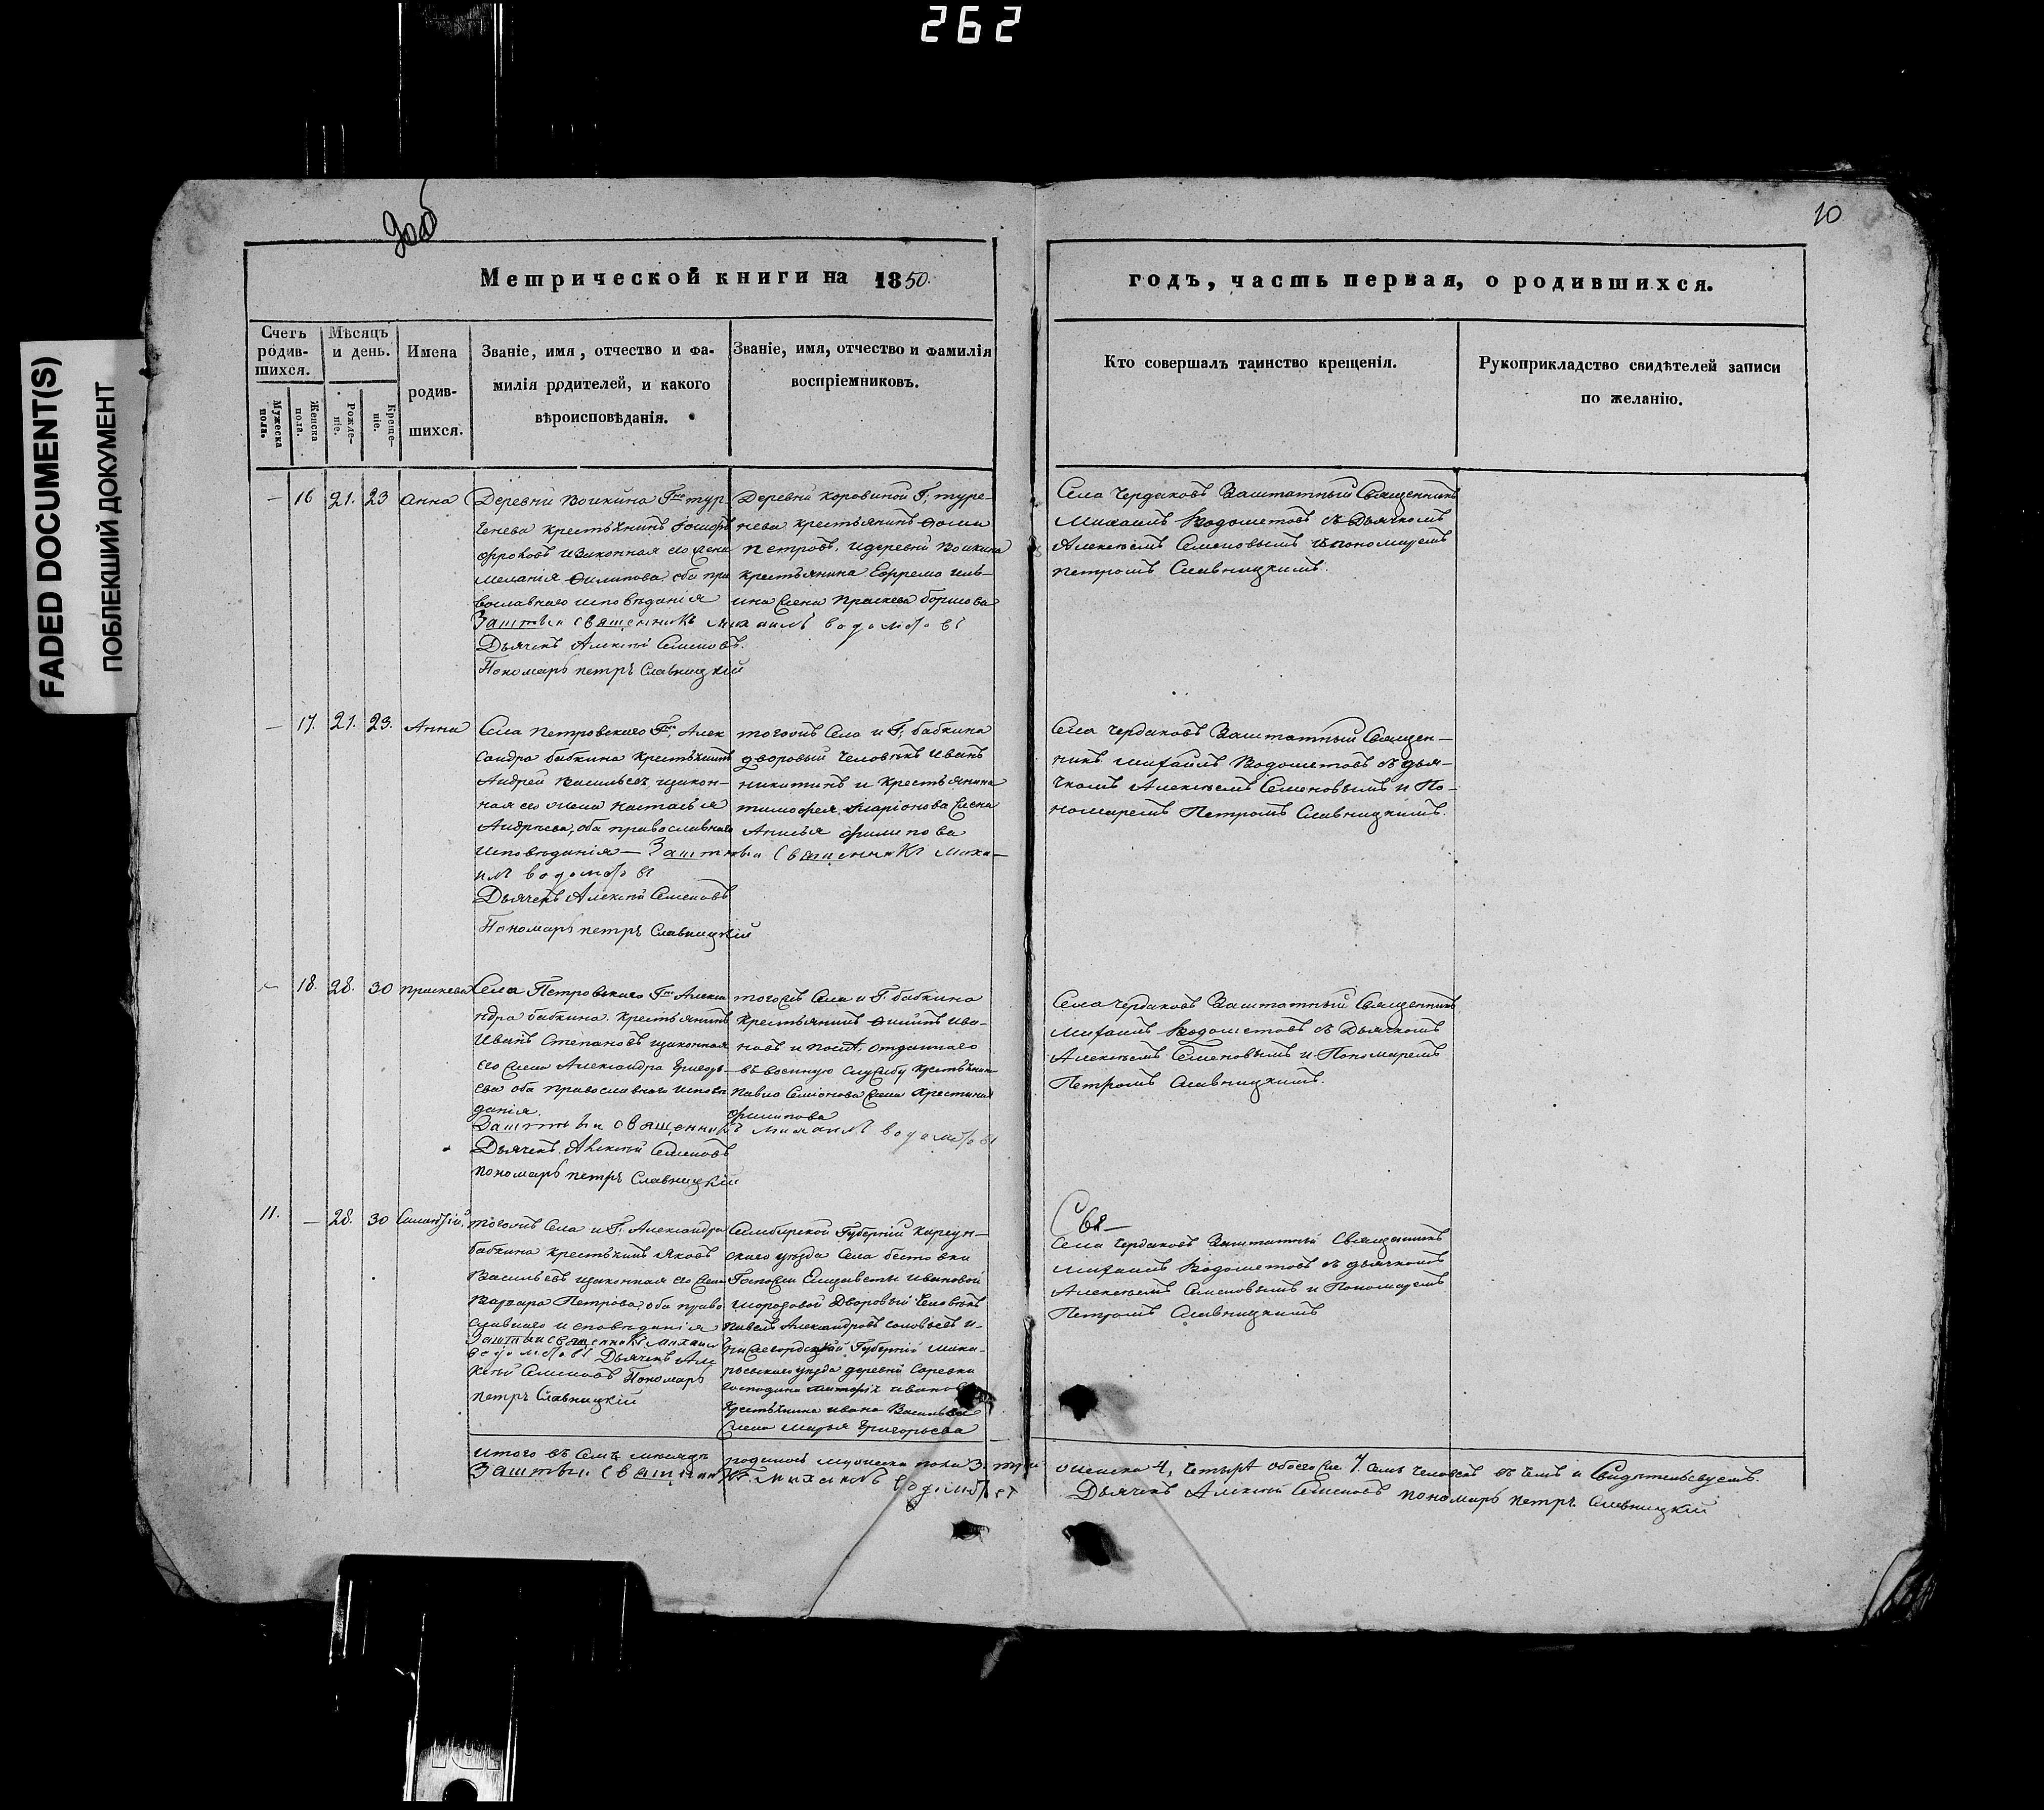 262
FADED DOCUMENT(S)
ПОБЛЕКШИЙ ДОКУМЕНТ
10
Метрической книги на 1850.
годъ, часть первая, о родившихся.
Счетъ родив-шихся.
Мужеска пола.
Женска пола.
Мѣсяцъ и день.
Рожде-ніе.
Креще-ніе.
Имена
родив-
шихся.
Званіе, имя, отчество и фа-
милія родителей, и какого
вѣроисповѣданія.
Званіе, имя, отчество и фамилія
воспріемниковъ.
Кто совершалъ таинство крещенія.
Рукоприкладство свидѣтелей записи
по желанію.
— 16 21. 23 Анна
Деревни Воикина Гна тур
генева крестьянинъ
Фроловъ изаконная его жена
меланія Филипова, оба пра
вославнаго исповѣданія
Заштный священникъ михаилъ водометовъ
Дьячекъ Алексѣй Семеновъ.
Пономарь петръ Славницкій
Деревни Коровиной Г. турге-
нева крестьянинъ Фома
петровъ, идеревни Воикина
крестьянина Ефрема иль-
ина жена Праскева борисова
Села Чердаковъ Заштатный Священникъ
Михаилъ Водометовъ съ Дьячкомъ
Алексѣемъ Семеновымъ и пономаремъ
петромъ Славницкимъ.
— 17. 21. 23. Анна
Села Петровскаго Гна Алек
сандра бабкина Крестьянинъ
Андрей Васильевъ, изакон-
ная его жена настасья
Андреева, оба православнаго
исповѣданія — Заштный священникъ миха-
илъ водометовъ
Дьячекъ Алексѣй Семеновъ
Пономарь петръ Славницкій
тогожъ Села и Г. бабкина
дворовый человѣкъ Иванъ
никитинъ и Крестьянина
тимофея Ларіонова жена
Анисья филипова
Села Чердаковъ Заштатный Священ-
никъ Михаилъ Водометовъ съ дья-
чкомъ Алексѣемъ Семеновымъ и По-
номаремъ Петромъ Славницкимъ.
18. 28. 30 праскева
Села Петровскаго Гна Алекса
ндра бабкина. Крестьянинъ
Иванъ Степановъ изаконная
его жена Александра Григорь-
ева оба православнаго исповѣ
данія.
Заштный священникъ михаилъ водометовъ
Дьячекъ Алексѣй Семеновъ
пономарь петръ Славницкій
тогожъ Села и Г. бабкина
Крестьянинъ Ива-
новъ и послѣ отданнаго
въ военную службу крестьянина
Павла Семіонова жена Христина
филипова
Села Чердаковъ Заштатный Священникъ
Михаилъ Водометовъ съ Дьячкомъ
Алексѣемъ Семеновымъ и Пономаремъ
Петромъ Славницкимъ.
11. — 28. 30
тогожъ Села и Г. Александра
бабкина крестьянинъ Яковъ
Васильевъ изаконная его жена
Варвара Петрова, оба право
славнаго исповѣданія
Заштный священникъ михаил
водометовъ Дьячекъ Але
ксѣй Семеновъ Пономарь
петръ Славницкій
Симбирской Губерніи Карсун-
скаго уѣзда Села
Госпожи Елизаветы Ивановой
Дворовый Человѣкъ
Павелъ Александровъ Соловьевъ и-
нижегородской Губерніи
уѣзда деревни
господина
Крестьянина ивана Васильева
жена Марья Григорьева
Свя—
Села Чердаковъ Заштатный Священникъ
Михаилъ Водометовъ съ дьячкомъ
Алексѣемъ Семеновымъ и Пономаремъ
Петромъ Славницкимъ
Итого въ Семъ мѣсяцѣ родилось мужеска пола 3. три а женска 4, четырѣ обоего же 7. семь человекъ въ чемъ и Свидѣтельствуемъ.
Заштный Священникъ михаилъ водометовъ Дьячекъ Алексѣй Семеновъ пономарь петръ Славницкій